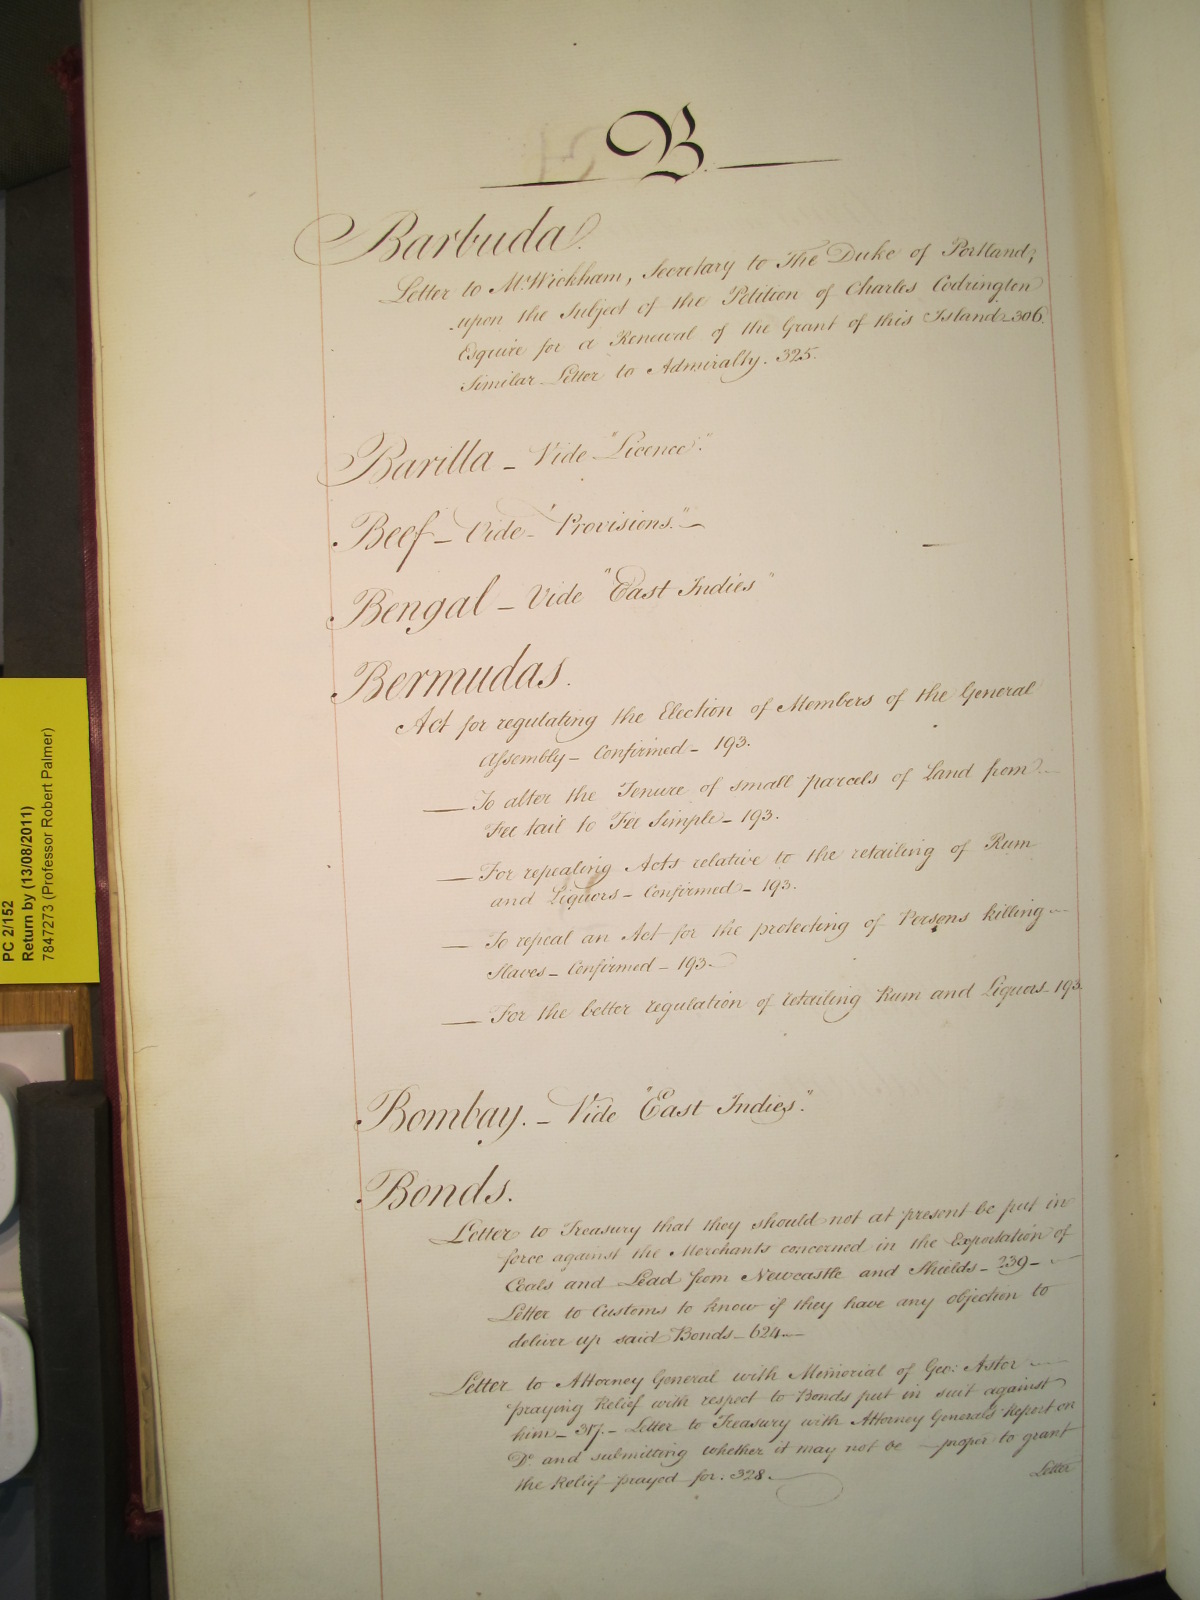 B.
Barbuda.
Letter to Mr. Wickham, Secretary to The Duke of Portland,
upon the Subject of the Petition of Charles Codrington
Esquire for a Renewal of the Grant of this Island - 306.
Similar Letter to Admiralty. 325.
Barilla - Vide "Licence".
Beef - Vide - "Provisions." -
Bengal - Vide "East Indies"
Bermudas.
Act for regulating the Election of Members of the General
Assembly - Confirmed - 193.
— To alter the Tenure of small parcels of Land from -
Fee tail to Fee Simple - 193.
— For repealing Acts relative to the retailing of Rum
and Liquors - Confirmed - 193.
— To repeal an Act for the protecting of Persons killing -
Slaves - Confirmed - 193 -
— For the better regulation of retailing Rum and Liquors - 193.
Bombay. - Vide "East Indies".
Bonds.
Letter to Treasury that they should not at present be put in
force against the Merchants concerned in the Exportation of
Coals and Lead from Newcastle and Shields - 239 -
Letter to Customs to know if they have any objection to
deliver up said Bonds - 624 -
Letter to Attorney General with Memorial of Geo: Astor -
praying Relief with respect to Bonds put in suit against
him - 317. - Letter to Treasury with Attorney General's Report on
Do. and submitting whether it may not be proper to grant
the Relief prayed for. 328.
Letter
PC 2/152
Return by (13/08/2011)
7847273 (Professor Robert Palmer)